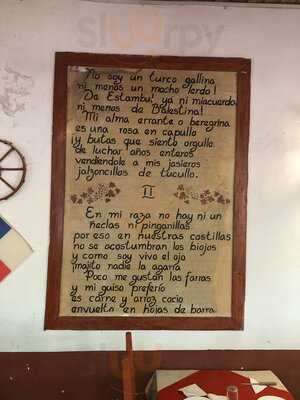 No soy un turco gallina
ni menos un macho lerdo!
De Estambul ya ni miacuerdo
ni menos de Balestina!
Mi alma errante o beregrina
es una rosa en capullo
¡y butas que siento orgullo
de luchar años enteros
vendiendole a mis jasieros
jalzoncillos de tucullo.
II
En mi raza no hay ni un
neclas ni pinganillas
por eso en nuestras costillas
no se acostumbran los biojos
y como soy vivo el ojo
jmojito nadie la agarra
Poco me gustan las farras
y mi guiso preferio
es carne y arroz cocio
envuelto en hojas de barra